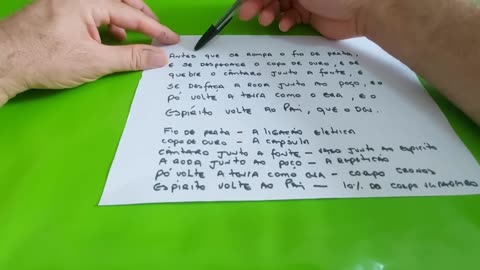 ANTES QUE SE ROMPA O FIO DE PRATA,
E SE DESPEDACE O COPO DE OURO, E SE
QUEBRE O CÂNTARO JUNTO A FONTE, E
SE DESFAÇA A RODA JUNTO AO POÇO, E O
PÓ VOLTE A TERRA COMO O ERA, E O
ESPÍRITO VOLTE AO PAI, QUE O DEU.
FIO DE PRATA - A LIGAÇÃO ELÉTRICA
COPO DE OURO - A CAPSULA
CÂNTARO JUNTO A FONTE - JUNTO AO ESPIRITO
A RODA JUNTO AO POÇO - A REPETIÇÃO
PÓ VOLTE A TERRA COMO ERA - CORPO CRONOS
ESPÍRITO VOLTE AO PAI - 10% DO CORPO